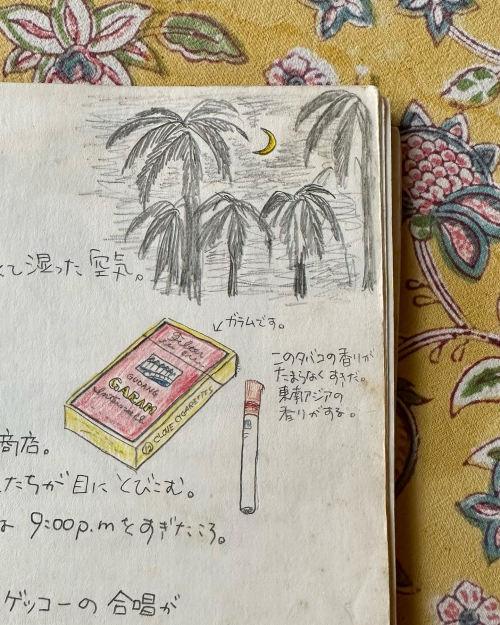 湿った空気。
ガラムです。
Filter
GUDANG
GARAM
CLOVE CIGARETTES
このタバコの香りが
たまらなくすきだ。
東南アジアの
香りがする。
商店。
たちが目にとびこむ。
9:00p.mをすぎたころ。
ゲッコーの合唱が